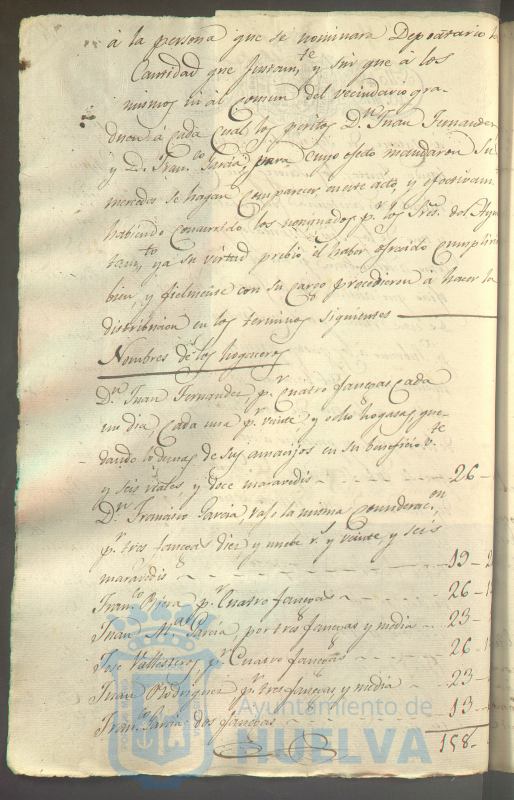 á la persona que se nominara Depositario la
Cantidad que Juntan.te y sin que á los
mismos ni al Comun del vecindario gra-
duen á cada cual los peritos D.n Juan Fernandez
y D. Fran.co Garcia, para cuyo efecto mandaron Su
mercedes se hagan comparecer en este acto, y efectivam.te
habiendo concurrido los nominados p.r los Sres. del Ayun
tam.to y a su virtud prebio el haber ofrecido cumplir
bien y fielmente con su cargo procedieron á hacer la
distribucion en los terminos siguientes
Nombres de los hogaceros
D.n Juan Fernandez, p.r Cuatro fanegas cada
un dia, cada una p.r veinte y ocho hogasas que-
dando lo demas de sus amacijos en su beneficio v.te
y seis reales y doce maravedis 26-
D.n Francisco Garcia, vajo la misma considerac.on
p.r tres fanegas diez y nuebe r.s y veinte y seis
maravedis 19-2
Fran.co p.r Cuatro fanegas 26-1
Juan M.a Garcia, por tres fanegas y media 23-
Jose Vallesteros, p.r Cuatro fanegas 26-1
Juan Rodriguez p.r tres fanegas y media 23-
Fran.co Garcia dos fanegas 13-
158-
Ayuntamiento de
HUELVA